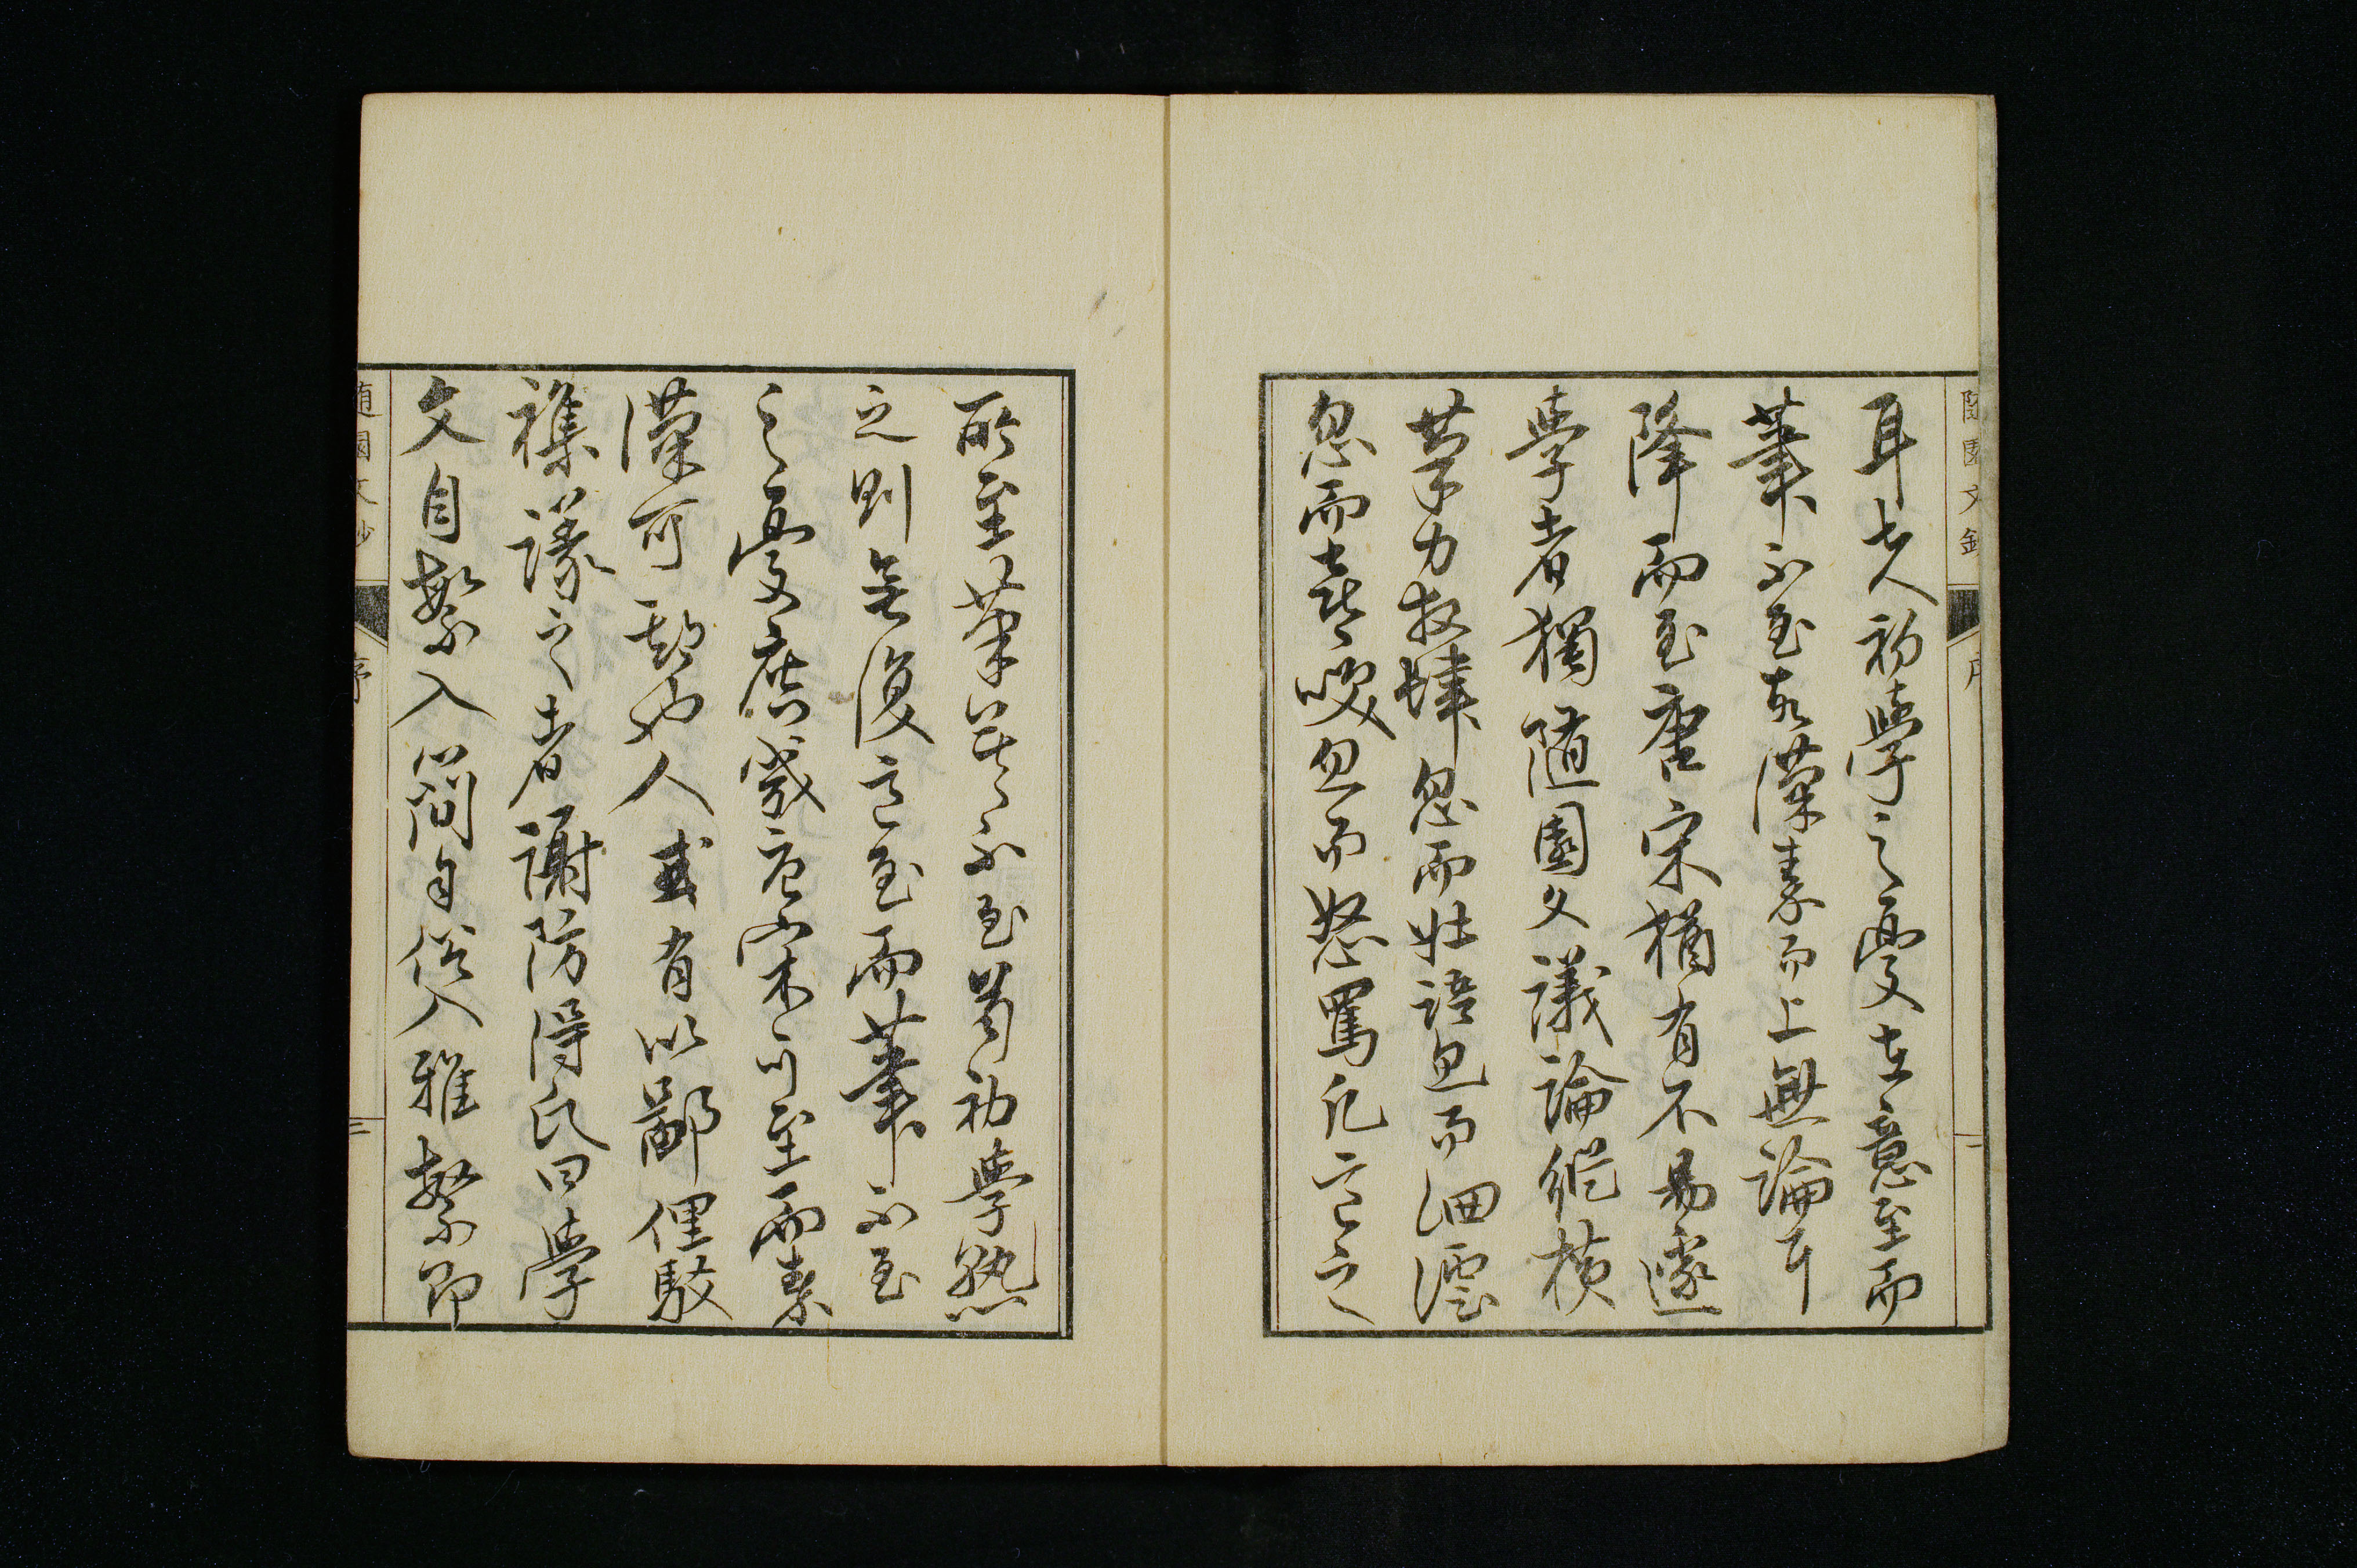 耳夫人初學之憂在意至而
筆不至秦漢素而上無論耳
降而至唐宋猶有不易遽
學者獨隨園文議論縱橫
筆力放肆忽而壯語忽而細澐
忽而喜笑忽而怒罵凡言之
所至筆無不至焉初學熟
之則無復意至而筆不至
之憂庶幾唐宋可至而秦
漢可期也人或有以鄙俚駁
雜議之者謝防得氏曰學
文自繁入簡自俗入雅繁即
隨園文鈔
序
二
隨園文鈔
序
三